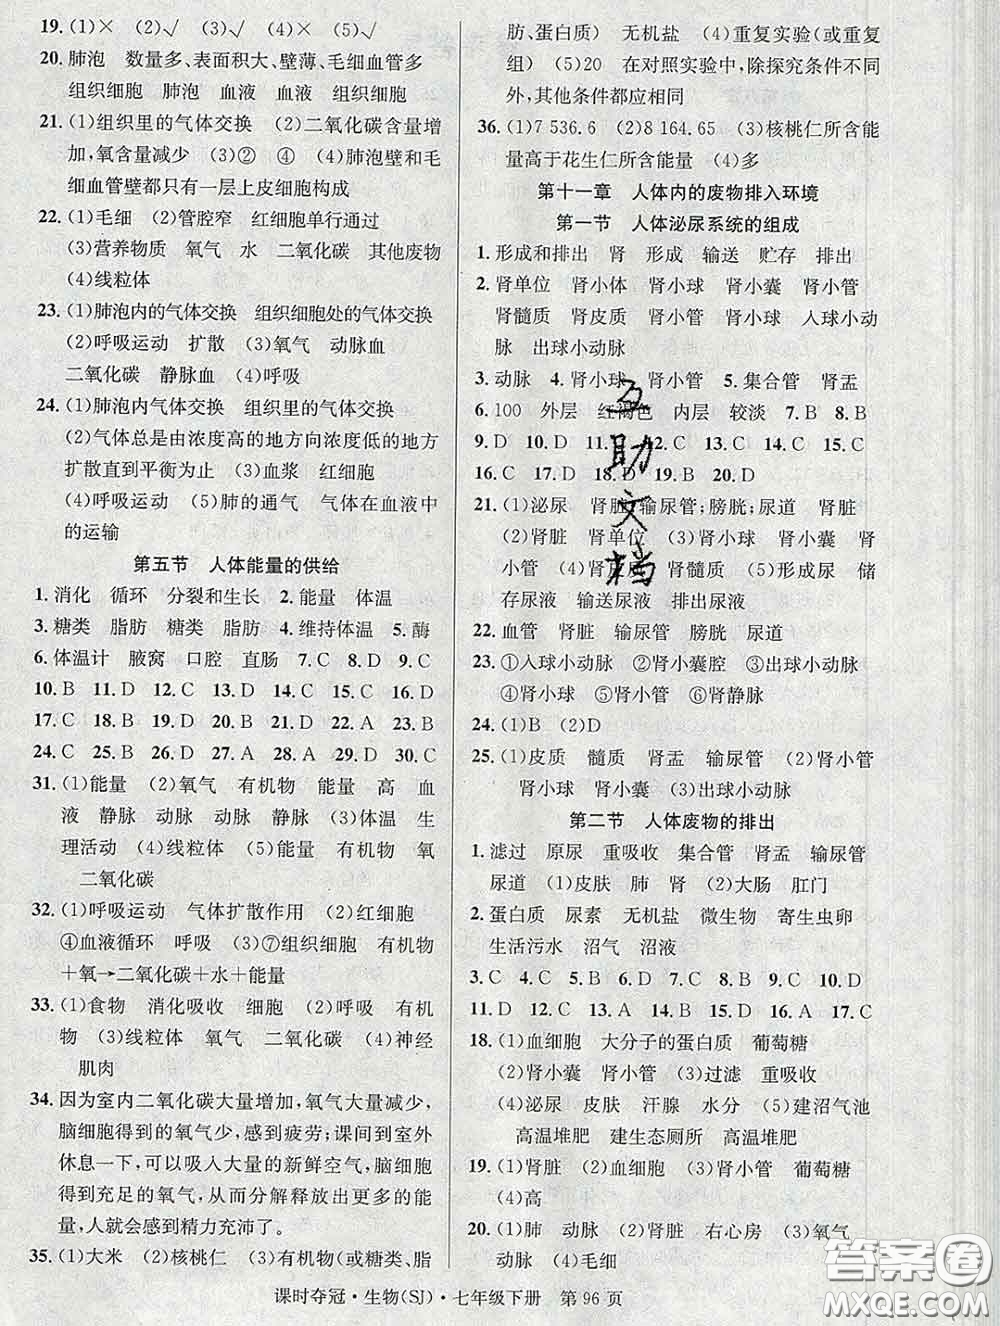 19. (1)× (2)√ (3)× (4)√ (5)√
20. 肺泡 数量多、表面积大、壁薄、毛细血管多
组织细胞 肺泡 血液 血液 组织细胞
21. (1)组织里的气体交换 (2)二氧化碳含量增
加,氧含量减少 (3)② ④ (4)肺泡壁和毛
细血管壁都只有一层上皮细胞构成
22. (1)毛细 (2)管腔窄 红细胞单行通过
(3)营养物质 氧气 水 二氧化碳 其他废物
(4)线粒体
23. (1)肺泡内的气体交换 组织细胞处的气体交换
(2)呼吸运动 扩散 (3)氧气 动脉血
二氧化碳 静脉血 (4)呼吸
24. (1)肺泡内气体交换 组织里的气体交换
(2)气体总是由浓度高的地方向浓度低的地方
扩散直到平衡为止 (3)血浆 红细胞
(4)呼吸运动 (5)肺的通气 气体在血液中
的运输
第五节 人体能量的供给
1. 消化 循环 分裂和生长 2. 能量 体温
3. 糖类 脂肪 糖类 脂肪 4. 维持体温 5. 酶
6. 体温计 腋窝 口腔 直肠 7. C 8. D 9. C
10. B 11. D 12. C 13. D 14. C 15. C 16. D
17. C 18. B 19. D 20. B 21. D 22. A 23. B
24. C 25. B 26. D 27. D 28. A 29. D 30. C
31. (1)能量 (2)氧气 有机物 能量 高 血
液 静脉 动脉 动脉 静脉 (3)体温 生
理活动 (4)线粒体 (5)能量 有机物 氧
二氧化碳
32. (1)呼吸运动 气体扩散作用 (2)红细胞
④血液循环 呼吸 (3)⑦组织细胞 有机物
+氧→二氧化碳+水+能量
33. (1)食物 消化吸收 细胞 (2)呼吸 有机
物 (3)线粒体 氧气 二氧化碳 (4)神经
肌肉
34. 因为室内二氧化碳大量增加,氧气大量减少,
脑细胞得到的氧气少,感到疲劳;课间到室外
休息一下,可以吸入大量的新鲜空气,脑细胞
得到充足的氧气,从而分解释放出更多的能
量,人就会感到精力充沛了。
35. (1)大米 (2)核桃仁 (3)有机物(或糖类、脂
肪、蛋白质) 无机盐 (4)重复实验(或重复
组) (5)20 在对照实验中,除探究条件不同
外,其他条件都应相同
36. (1)7 536.6 (2)8 164.65 (3)核桃仁所含能
量高于花生仁所含能量 (4)多
第十一章 人体内的废物排入环境
第一节 人体泌尿系统的组成
1. 形成和排出 肾 形成 输送 贮存 排出
2. 肾单位 肾小体 肾小球 肾小囊 肾小管
肾髓质 肾皮质 肾小管 肾小球 入球小动
脉 出球小动脉
3. 动脉 4. 肾小球 肾小管 5. 集合管 肾盂
6. 100 外层 红褐色 内层 较淡 7. B 8. B
9. D 10. D 11. 12. C 13. C 14. C 15. C
16. C 17. D 18. D 19. D 20. D
21. (1)泌尿 肾脏;输尿管;膀胱;尿道 (2)肾脏
(2)肾脏 肾单位 (3)肾小球 肾小囊 肾
小管 (4)肾皮质 肾髓质 (5)形成尿 储
存尿液 输送尿液 排出尿液
22. 血管 肾脏 输尿管 膀胱 尿道
23. ①入球小动脉 ②肾小囊腔 ③出球小动脉
④肾小球 ⑤肾小管 ⑥肾静脉
24. (1)B (2)D
25. (1)皮质 髓质 肾盂 输尿管 (2)肾小管
肾小球 肾小囊 (3)出球小动脉
第二节 人体废物的排出
1. 滤过 原尿 重吸收 集合管 肾盂 输尿管
尿道 (1)皮肤 肺 肾 (2)大肠 肛门
2. 蛋白质 尿素 无机盐 微生物 寄生虫卵
生活污水 沼气 沼液
3. C 4. C 5. B 6. D 7. C 8. D 9. C 10. B
11. D 12. C 13. A 14. B 15. D 16. A 17. C
18. (1)血细胞 大分子的蛋白质 葡萄糖
(2)肾小囊 肾小管 (3)过滤 重吸收
(4)泌尿 皮肤 汗腺 水分 (5)建沼气池
高温堆肥 建生态厕所 高温堆肥
19. (1)肾脏 (2)血细胞 (3)肾小管 葡萄糖
(4)高
20. (1)肺 动脉 (2)肾脏 右心房 (3)氧气
动脉 (4)毛细
课时夺冠·生物(SJ)·七年级下册 第96页
互助文档
答案圈
MXQE.COM